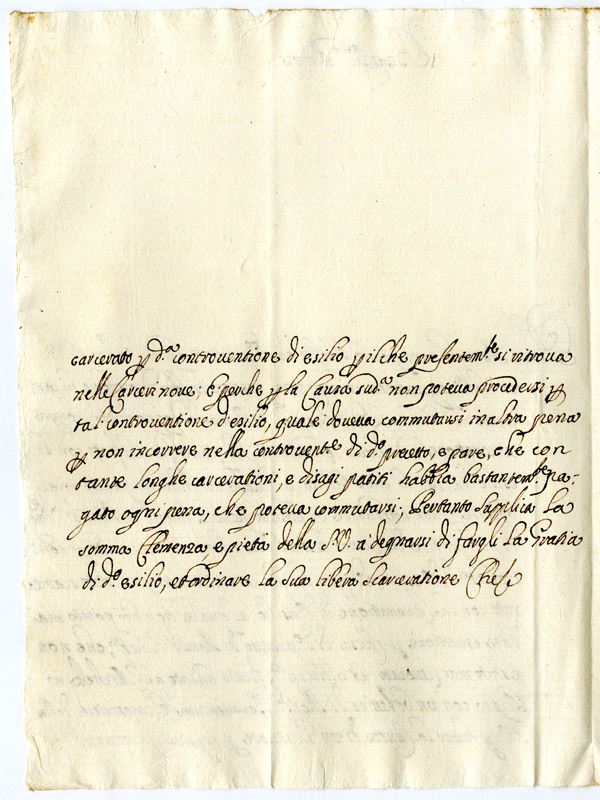 carcerato p d.ª controventione di esilio p ilche presentem.te si ritrova
nelle Carceri nove; E perche p la Causa sud.ª non poteva procedersi p
tal controventione d'esilio, quale doveva commutarsi in altra pena
p non incorrere nella controvent.e di d.º precetto, e pare, che con
tante longhe carcerationi, e disagi patiti habbia bastantem.te pa-
gato ogni pena, che poteva commutarsi; Pertanto supplica la
somma Clemenza e pietà della S.V. a degnarsi di fargli la Gratia
di d.º esilio, et ordinare la sua libera Scarceratione Che